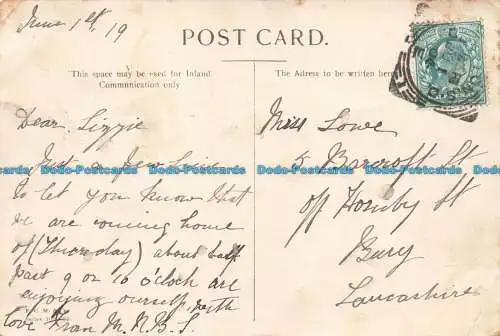 June 1st, 19
POST CARD.
This space may be used for Inland
Communication only
The Adress to be written here
Dear Lizzie
Just a few line
to let you know that
we are coming home
of (Thursday) about half
past 9 or 10 o'clock are
enjoying ourself with
love from M.
Miss Lowe
5 Bancroft St
off Hornby St
Bury
Lancashire
Dodo-Postcards Dodo-Postcards Dodo-Postcards Dodo-Postcards Dodo-Postcards